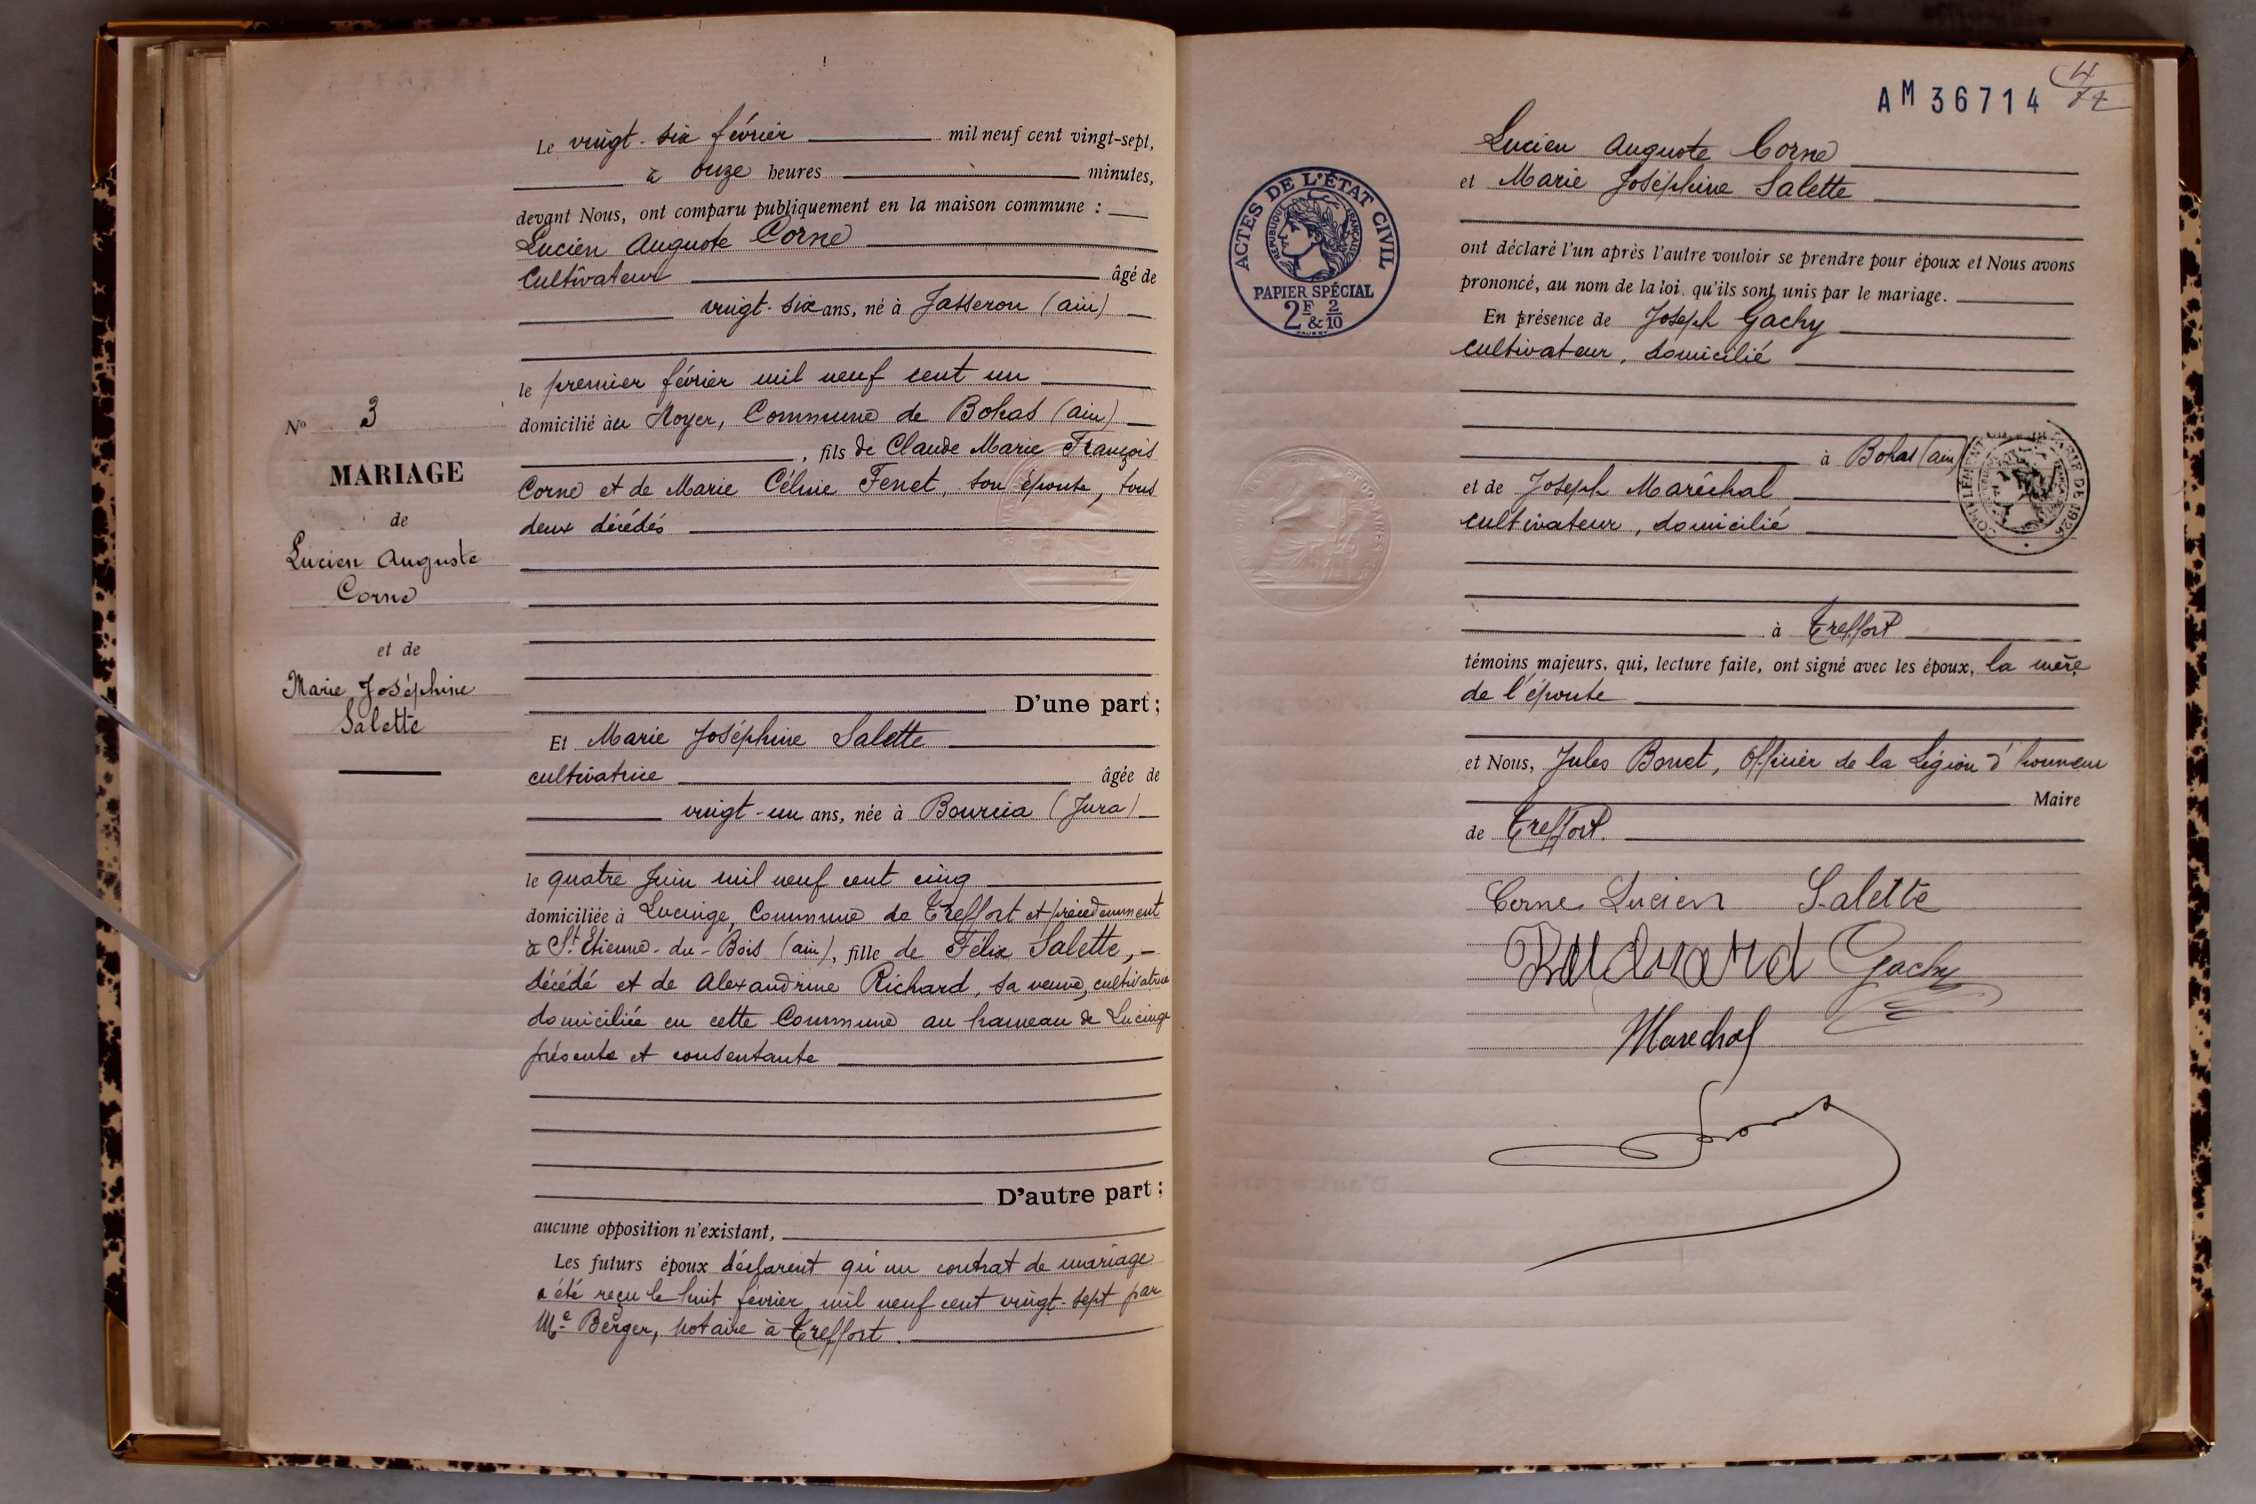 Le vingt-six février mil neuf cent vingt-sept,
à onze heures minutes,
devant Nous, ont comparu publiquement en la maison commune :
Lucien Auguste Corne
Cultivateur âgé de
vingt-six ans, né à Jasseron (ain)
le premier février mil neuf cent un
domicilié au Noyer, Commune de Bohas (ain)
, fils de Claude Marie François
Corne et de Marie Célinie Fenet, son épouse, tous
deux décédés
No 3
MARIAGE
de
Lucien Auguste
Corne
et de
Marie Joséphine
Salette
D'une part ;
Et Marie Joséphine Salette
cultivatrice âgée de
vingt-un ans, née à Bourcia (Jura)
le quatre Juin mil neuf cent cinq
domiciliée à Lucinge, Commune de Treffort et précédemment
à St. Etienne-du-Bois (ain), fille de Félix Salette,
décédé et de Alexandrine Richard, sa veuve, cultivatrice
domiciliée en cette Commune au hameau de Lucinge
présente et consentante
D'autre part ;
aucune opposition n'existant,
Les futurs époux déclarent qu'un contrat de mariage
a été reçu le huit février mil neuf cent vingt-sept par
Me Berger, notaire à Treffort.
AM 36714
Lucien Auguste Corne
et Marie Joséphine Salette
ACTES DE L'ÉTAT CIVIL
RÉPUBLIQUE FRANÇAISE
PAPIER SPÉCIAL
2F & 2/10
ont déclaré l'un après l'autre vouloir se prendre pour époux et Nous avons
prononcé, au nom de la loi, qu'ils sont unis par le mariage.
En présence de Joseph Gachy
cultivateur, domicilié
à Bohas (ain)
et de Joseph Maréchal
cultivateur, domicilié
à Treffort
témoins majeurs, qui, lecture faite, ont signé avec les époux, la mère
de l'épouse
et Nous, Jules Bonet, Officier de la Légion d'honneur
Maire
de Treffort.
Corne Lucien Salette
Gachy
Marechal